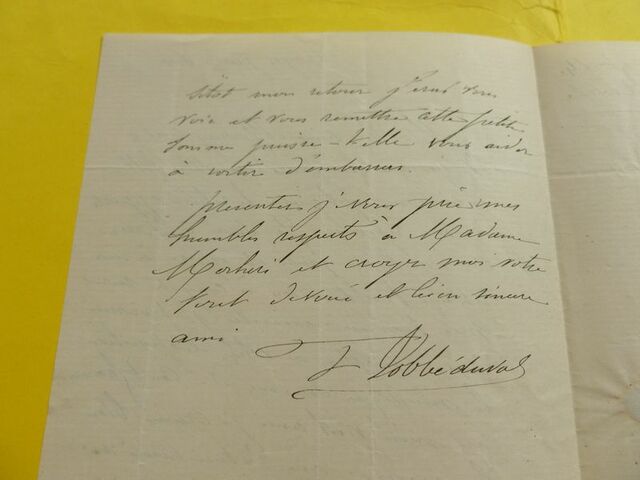 sitôt mon retour j'irai vous
voir et vous remettre cette petite
somme puisse-t-elle vous aider
à sortir d'embarras.
présentez j'vous prie mes
humbles respects à Madame
et croyez moi votre
tout dévoué et bien sincère
ami
F Lobbéduval